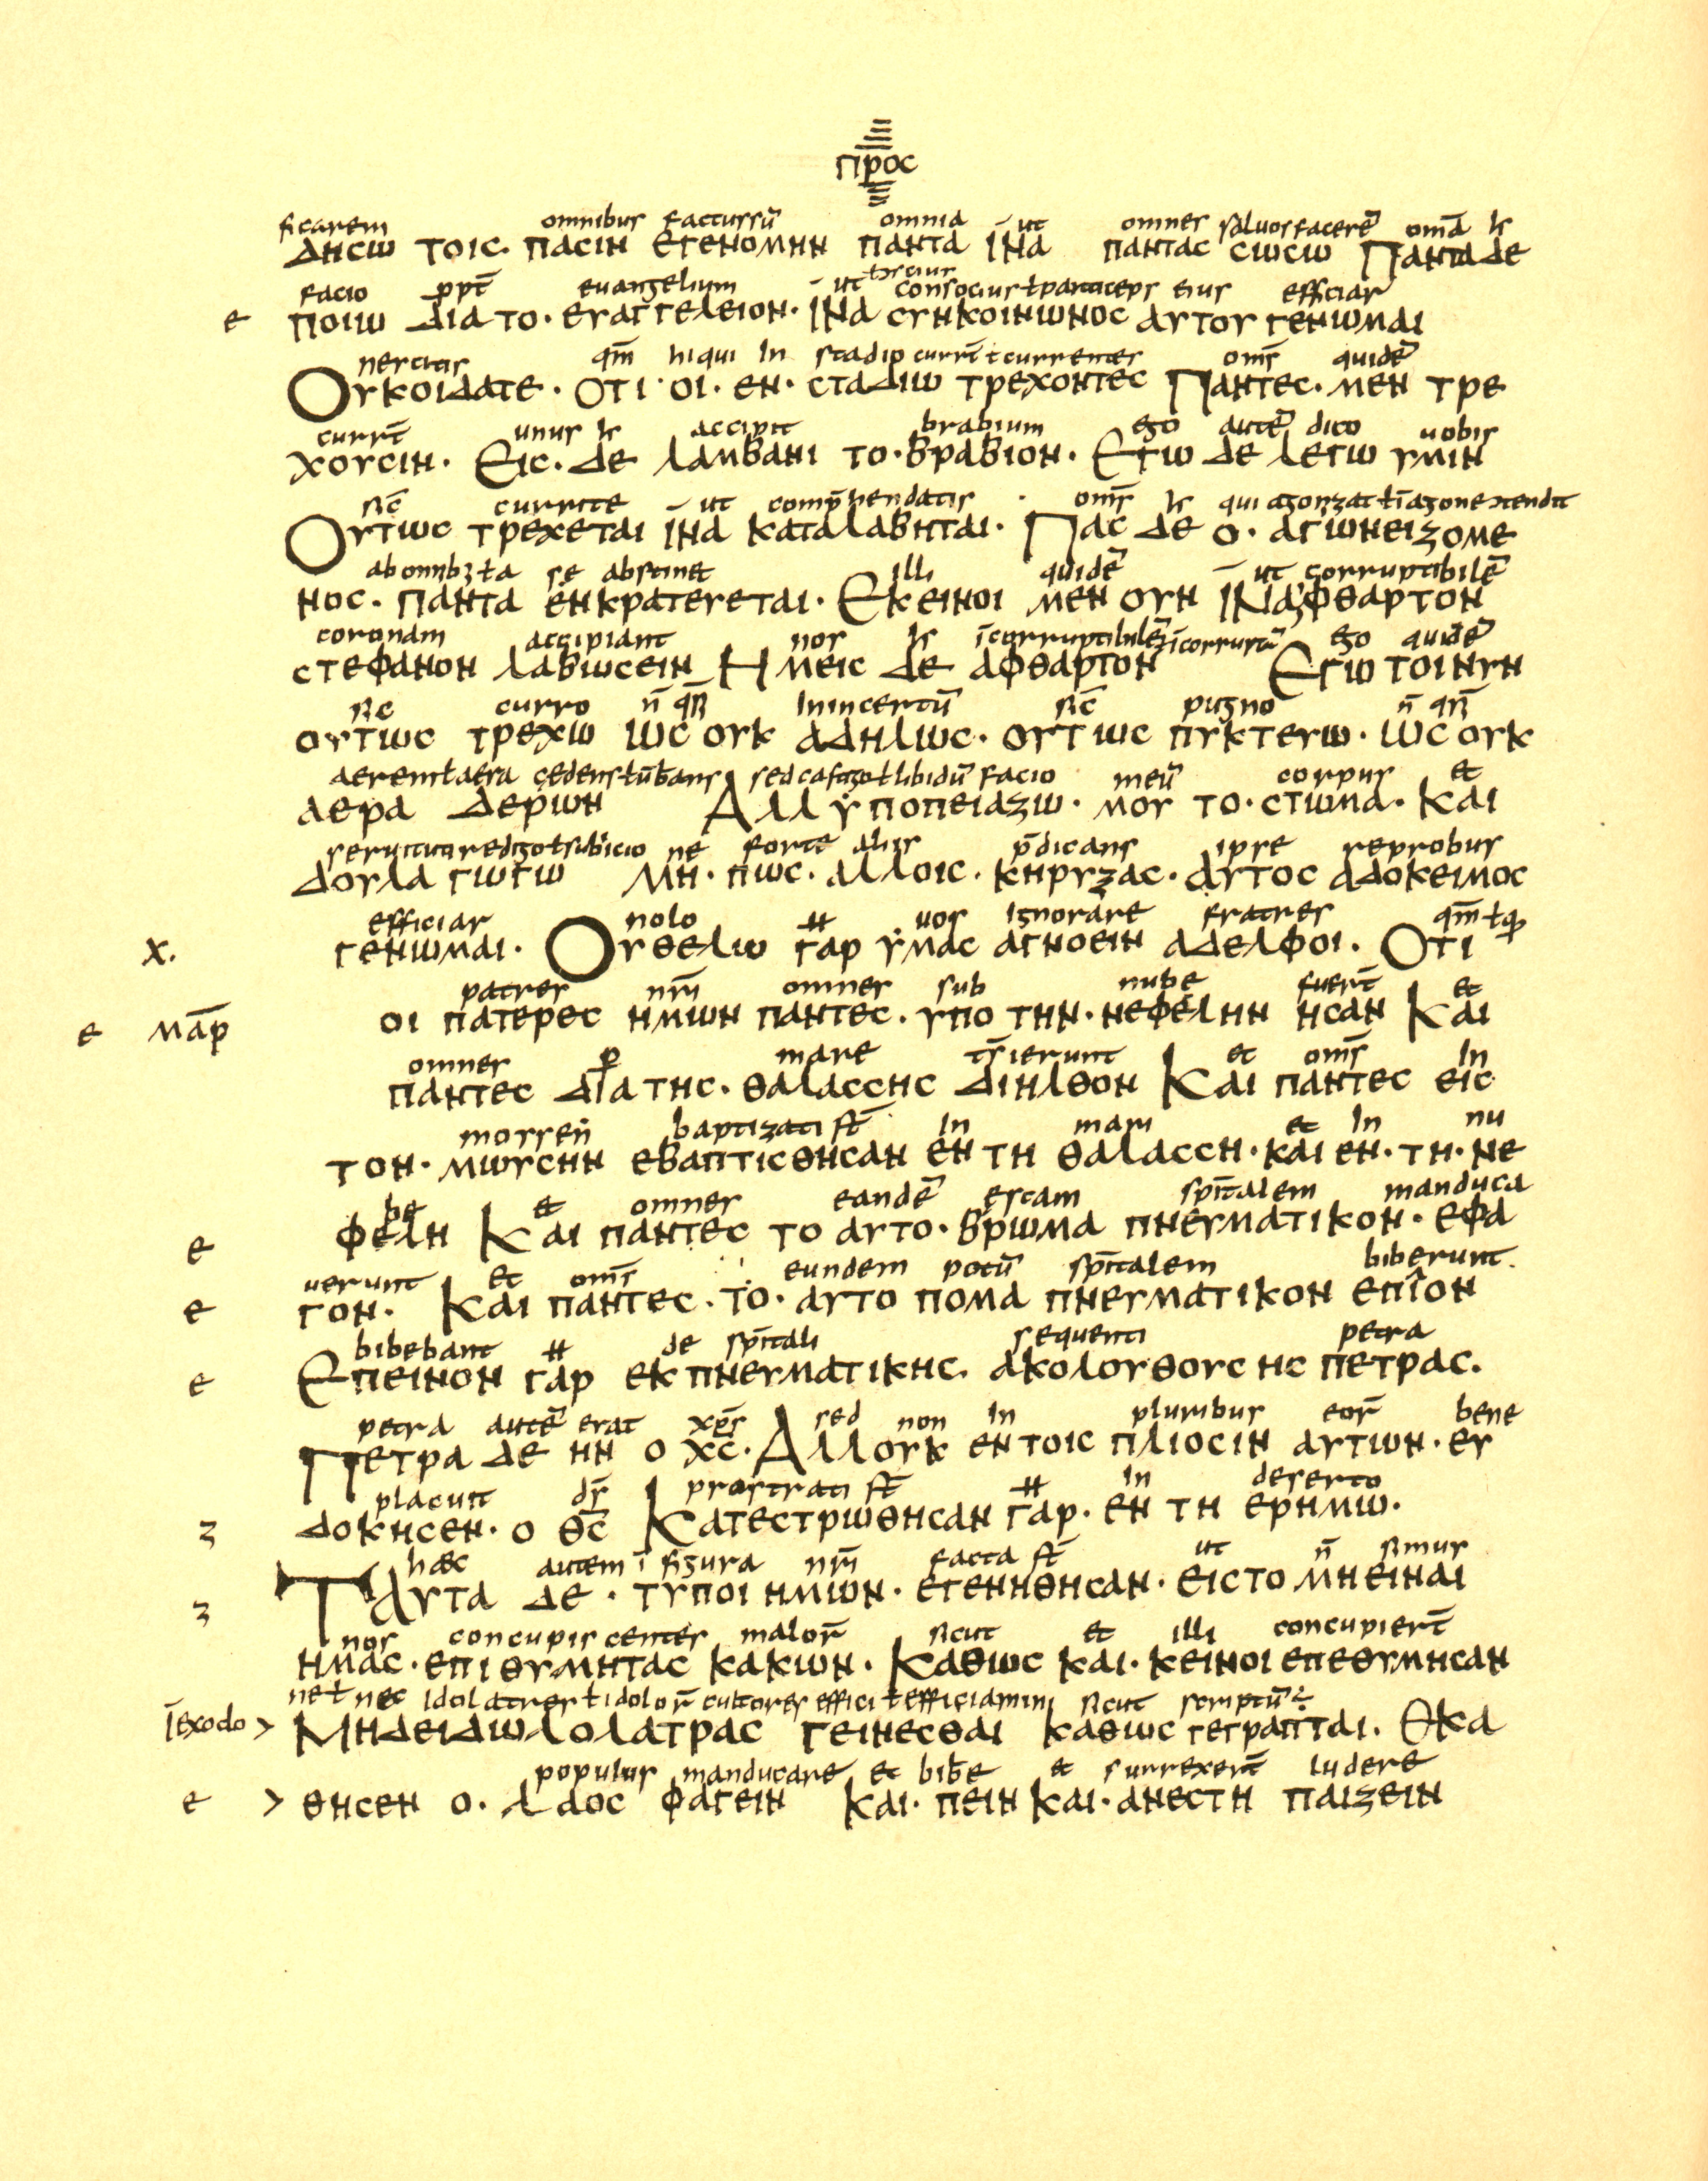 προς
ficarem omnibus facturſū omnia ut omnes saluos facerē omīa
δησω τοις· πασιν εγενομην παντα ϊνα παντας σωσω Παντα δε
facio euangelium ut consocius ł particeps eius efficiar
e ποιω δια το· ευαγγελειον· ϊνα συνκοινωνος αυτου γενωμαι
nescitis qm̄ hi qui in stadio currēt currentes oms̄ quidē
Ουκοιδατε· οτι· οι· εν· σταδιω τρεχοντες Παντες· μεν τρε
currēt unus accipit brabium ego autē dico uobis
χουσιν· Εις· δε λαμβανι το· βραβιον· Εγω δε λεγω υμιν
sic̄ currite ut comp̄hendatis oms̄
Ουτως τρεχεται ϊνα καταλαβηται· Πας δε ο· αγωνειζομε
se abstinet illi quidē ut corruptibilē
νος· παντα ενκρατευεται· Εκεινοι μεν ουν ϊνα φθαρτον
coronam accipiant nos īcorruptibilē ego quidē
στεφανον λαβωσειν Ημεις δε αφθαρτον Εγω τοινυν
sic curro n̄ in incertū sic̄ pugno n̄
ουτως τρεχω ως ουκ αδηλως· ουτως πυκτευω· ως ουκ
aerem ł aera cedens facio meū corpus et
αερα δερων Αλλ υποπειαζω· μου το· στωμα· και
ne forte aliis p̄dicans ipse reprobus
δουλα γωγω μη· πως· αλλοις· κηρυξας· αυτος αδοκειμος
efficiar nolo uos ignorare fratres qm̄
χ. γενωμαι· Ουθελω γαρ υμας αγνοειν αδελφοι· Οτι
patres nr̄i omnes sub nube fuerт̄ et
e μαρ οι πατερες ημων παντες· υπο την· νεφελην ησαν Και
omnes p mare tr̄sierunt et oms̄ in
παντες δια της· θαλασσης διηλθον Και παντες εις
moysen baptizati st̄ in mari et in nu
τον· μωυσην εβαπτισθησαν εν τη θαλασση· και εν· τη· νε
be et omnes eandē escam spīt̄alem manduca
e φελη Και παντες το αυτο· βρωμα πνευματικον· εφα
uerunt et oms̄ eundem potū spīt̄alem biberunt
e γον· Και παντες· το· αυτο πομα πνευματικον επιον
bibebant de spīt̄ali sequenti petra
e Επεινον γαρ εκ πνευματικης· ακολουθουσης πετρας·
petra autē erat xp̄s sed non in pluribus eor̄ bene
Πετρα δε ην ο χ̄ς· Αλλουκ εν τοις πλιοσιν αυτων· ευ
placuit ds̄ prostrati st̄ in deserto
ʒ δοκησεν· ο θ̄ς Κατεστρωθησαν γαρ· εν τη ερημω·
haec autem ī figura nr̄i facta st̄ ut n̄ simus
ʒ Ταυτα δε· τυποι ημων· εγενηθησαν· εις το μη ειναι
nos concupiscentes malor̄ sicut et illi concupierт̄
ημας· επιθυμητας κακων· Καθως και· κεινοι επεθυμησαν
ne ł nec idolatres ł idolor̄ cultores effici ł efficiamini sicut scriptū
īexodo > Μηδειδωλολατρας γεινεσθαι καθως γεγραπται· Εκα
populus manducare et bibe et surrexerт̄ ludere
e > θησεν ο· λαος φαγειν και· πειν και· ανεστη παιζειν